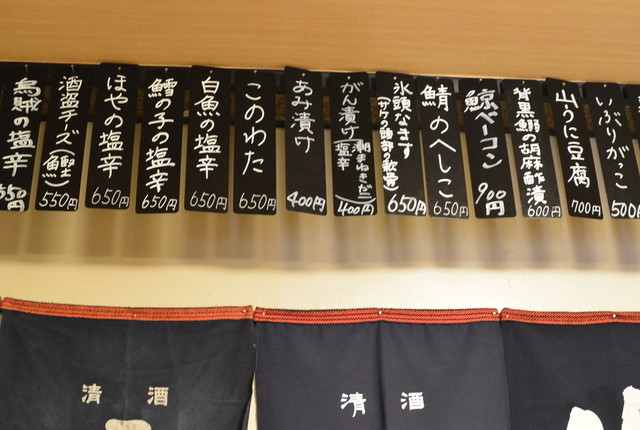 いぶりがっこ
500
山うに豆腐
700円
背黒鰯の胡麻酢漬
600円
鯨ベーコン
900円
鯖のへしこ
650円
氷頭なます
(サケの頭部の軟骨)
650円
がん漬け
(潮まねきがに塩辛)
400円
あみ漬け
400円
このわた
650円
白魚の塩辛
650円
鱈の子の塩辛
650円
ほやの塩辛
650円
酒盗チーズ(鰹)
550円
烏賊の塩辛
550円
清酒
清酒